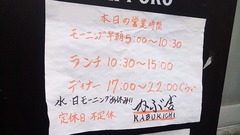 本日の営業時間
モーニング 早朝5:00〜10:30
ランチ 10:30〜15:00
ディナー 17:00〜22:00ぐらい
水、日モーニングお休み!!
定休日 不定休
かぶ吉
KABUKICHI